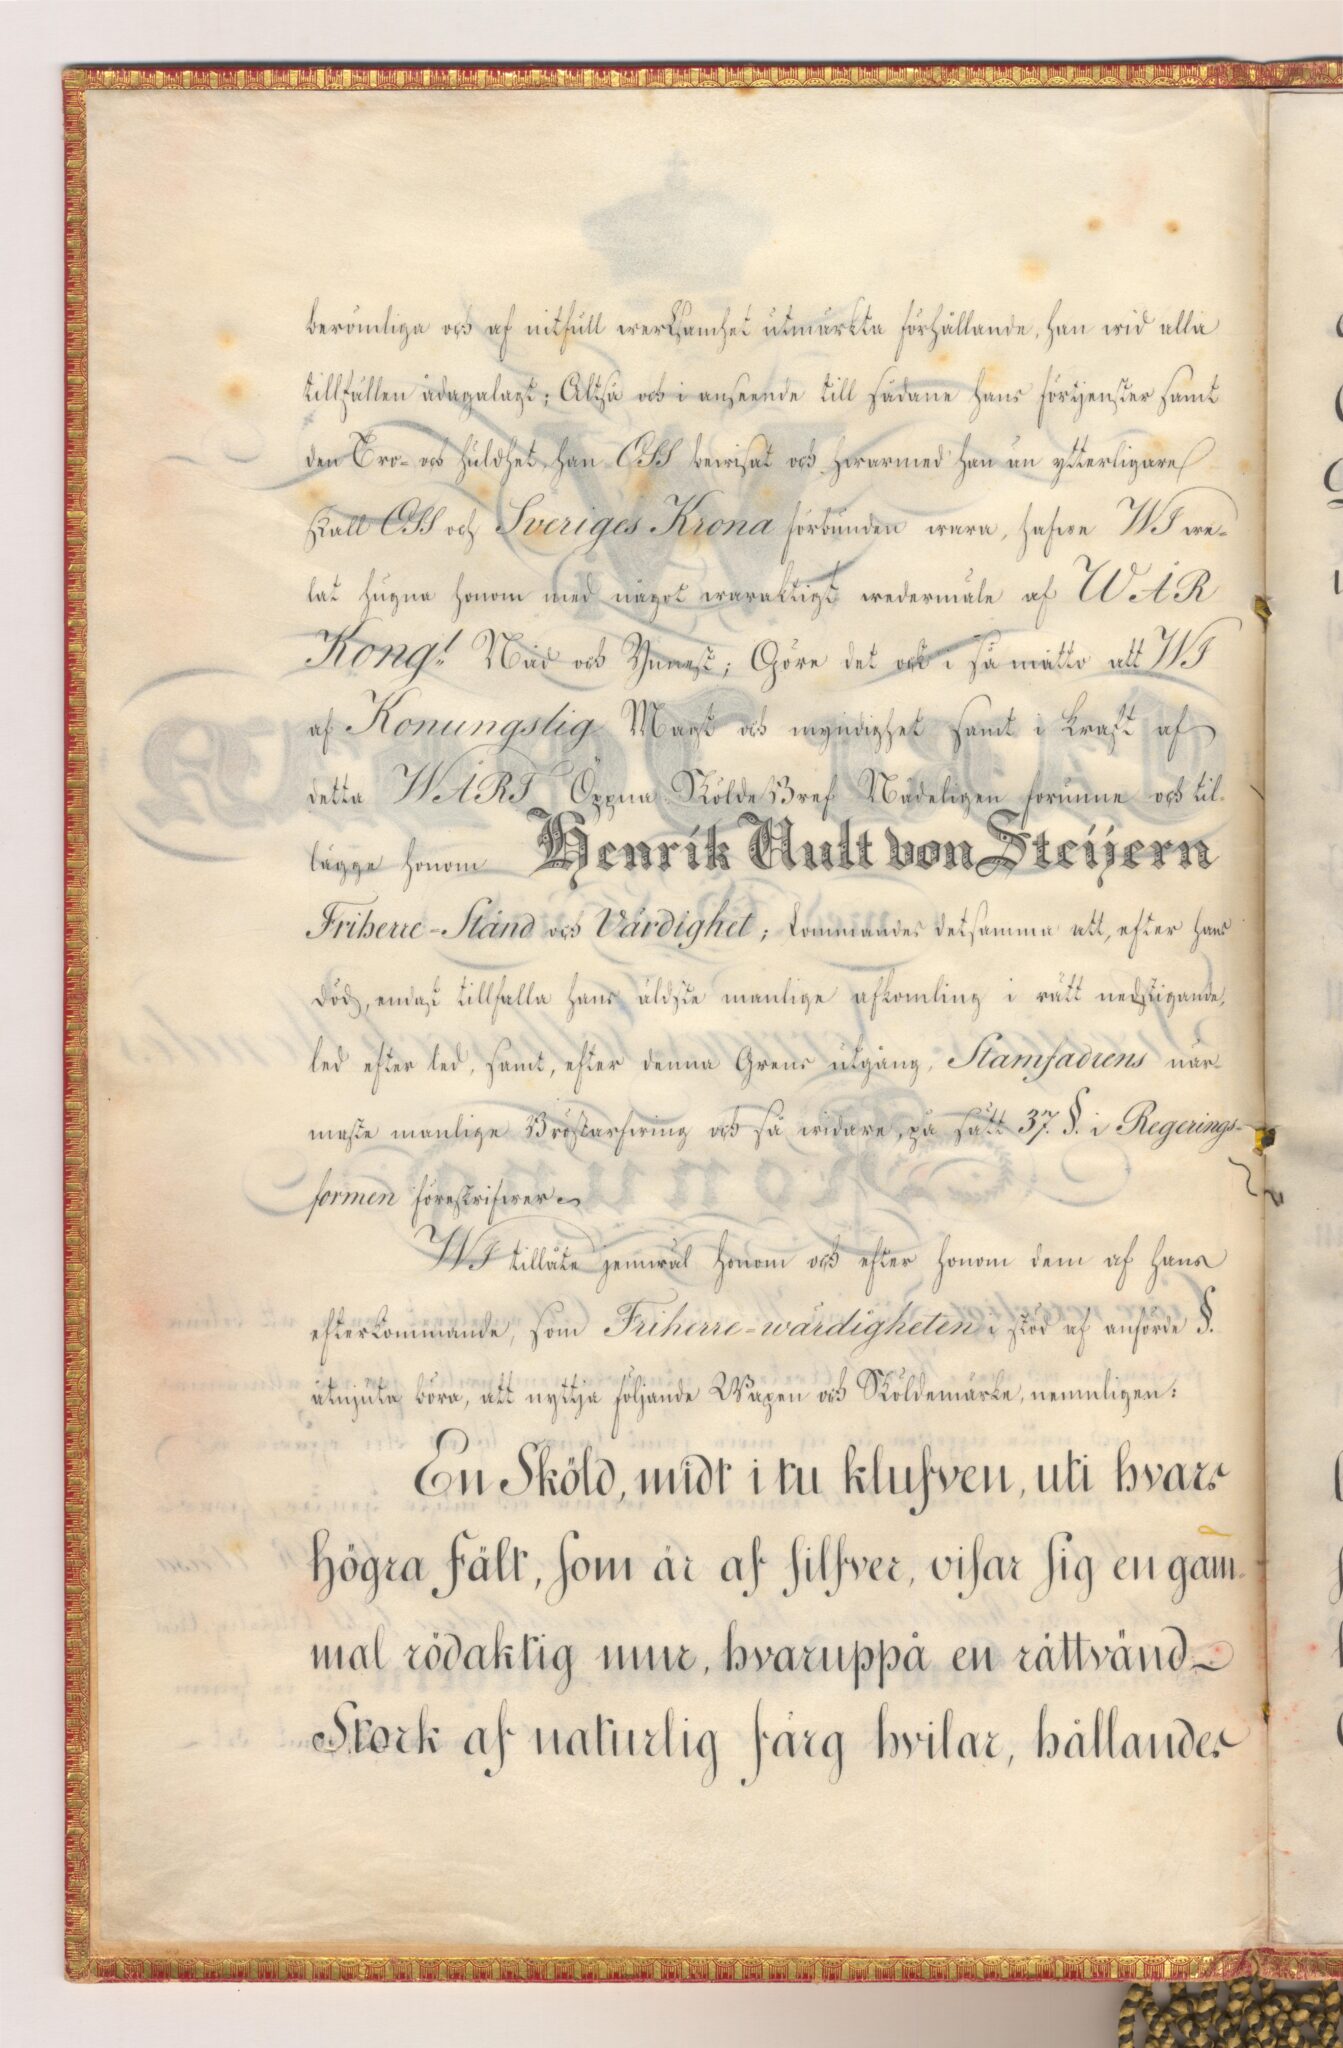 berömliga och af nitfull werksamhet utmärkta förhållande, han wid alla
tillfällen ådagalagt; Altså och i anseende till sådane hans förtjenster samt
den Tro- och huldhet, han OSS bewisat och hwarmed han än ytterligare
skall OSS och Sveriges Krona förbunden wara, hafwe WI we-
lat hugna honom med något waraktigt wedermäle af WÅR
Kongl. Nåd och Ynnest; Göre det ock i så måtto att WI
af Konungslig Magt och myndighet samt i kraft af
detta WÅRT Öppna SköldeBref Nådeligen forunne och til-
lägge honom Henrik Ault von Steijern
Friherre-Stånd och Värdighet; kommandes detsamma att, efter hans
död, endast tillfalla hans äldste manlige afkomling i rätt nedstigande
led efter led, samt, efter denna Grens utgång, Stamfadrens när-
maste manlige Bröstarfwing och så widare, på sätt 37. §. i Regerings-
formen föreskrifwer.
WI tillåte jemwäl honom och efter honom dem af hans
efterkommande, som Friherre-wärdigheten i stöd af anförde §.
åtnjuta böra, att nyttja följande Wapen och Sköldemärke, nemnligen:
En Sköld, midt i tu klufven, uti hvars
högra Fält, som är af silfver, visar sig en gam-
mal rödaktig mur, hvaruppå en rättvänd
Stork af naturlig färg hvilar, hållandes